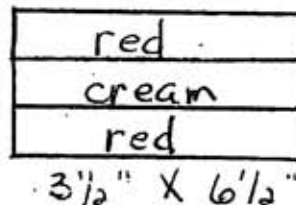 red
cream
red
3 1/2" X 6 1/2"